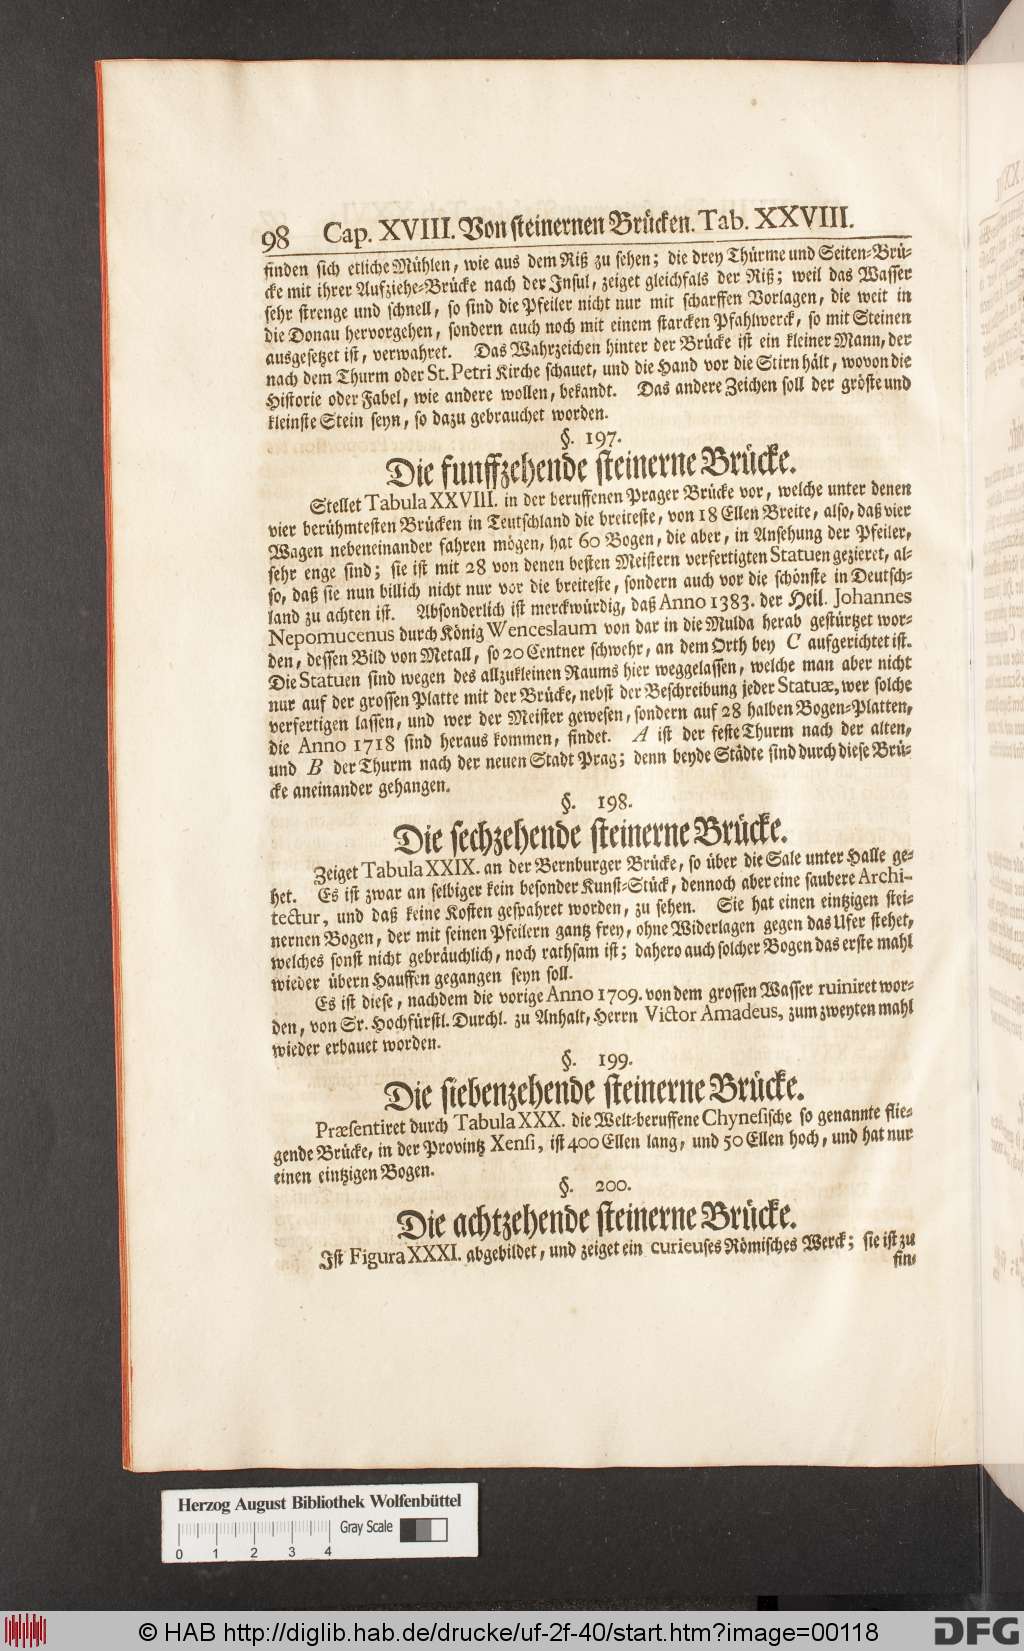 98 Cap. XVIII. Von steinernen Brücken. Tab. XXVIII.
finden sich etliche Mühlen, wie aus dem Riß zu sehen; die drey Thürme und Seiten-Brü-
cke mit ihrer Aufziehe-Brücke nach der Insul, zeiget gleichfals der Riß; weil das Wasser
sehr strenge und schnell, so sind die Pfeiler nicht nur mit scharffen Vorlagen, die weit in
die Donau hervorgehen, sondern auch noch mit einem starcken Pfahlwerck, so mit Steinen
ausgesetzet ist, verwahret. Das Wahrzeichen hinter der Brücke ist ein kleiner Mann, der
nach dem Thurm oder St. Petri Kirche schauet, und die Hand vor die Stirn hält, wovon die
Historie oder Fabel, wie andere wollen, bekandt. Das andere Zeichen soll der gröste und
kleinste Stein seyn, so dazu gebrauchet worden.
§. 197.
Die funffzehende steinerne Brücke.
Stellet Tabula XXVIII. in der beruffenen Prager Brücke vor, welche unter denen
vier berühmtesten Brücken in Teutschland die breiteste, von 18 Ellen Breite, also, daß vier
Wagen nebeneinander fahren mögen, hat 60 Bogen, die aber, in Ansehung der Pfeiler,
sehr enge sind; sie ist mit 28 von denen besten Meistern verfertigten Statuen gezieret, al-
so, daß sie nun billich nicht nur vor die breiteste, sondern auch vor die schönste in Deutsch-
land zu achten ist. Absonderlich ist merckwürdig, daß Anno 1383. der Heil. Johannes
Nepomucenus durch König Wenceslaum von dar in die Mulda herab gestürtzet wor-
den, dessen Bild von Metall, so 20 Centner schwehr, an dem Orth bey C aufgerichtet ist.
Die Statuen sind wegen des allzukleinen Raums hier weggelassen, welche man aber nicht
nur auf der grossen Platte mit der Brücke, nebst der Beschreibung jeder Statuæ, wer solche
verfertigen lassen, und wer der Meister gewesen, sondern auf 28 halben Bogen-Platten,
die Anno 1718 sind heraus kommen, findet. A ist der feste Thurm nach der alten,
und B der Thurm nach der neuen Stadt Prag; denn beyde Städte sind durch diese Brü-
cke aneinander gehangen.
§. 198.
Die sechzehende steinerne Brücke.
Zeiget Tabula XXIX. an der Bernburger Brücke, so über die Sale unter Halle ge-
het. Es ist zwar an selbiger kein besonder Kunst-Stück, dennoch aber eine saubere Archi-
tectur, und daß keine Kosten gespahret worden, zu sehen. Sie hat einen eintzigen stei-
nernen Bogen, der mit seinen Pfeilern gantz frey, ohne Widerlagen gegen das Ufer stehet,
welches sonst nicht gebräuchlich, noch rathsam ist; dahero auch solcher Bogen das erste mahl
wieder übern Hauffen gegangen seyn soll.
Es ist diese, nachdem die vorige Anno 1709. von dem grossen Wasser ruiniret wor-
den, von Sr. Hochfürstl. Durchl. zu Anhalt, Herrn Victor Amadeus, zum zweyten mahl
wieder erbauet worden.
§. 199.
Die siebenzehende steinerne Brücke.
Præsentiret durch Tabula XXX. die Welt-beruffene Chynesische so genannte flie-
gende Brücke, in der Provintz Xensi, ist 400 Ellen lang, und 50 Ellen hoch, und hat nur
einen eintzigen Bogen.
§. 200.
Die achtzehende steinerne Brücke.
Ist Figura XXXI. abgebildet, und zeiget ein curieuses Römisches Werck; sie ist zu
fin-
Herzog August Bibliothek Wolfenbüttel
Gray Scale
0 1 2 3 4
© HAB http://diglib.hab.de/drucke/uf-2f-40/start.htm?image=00118
DFG